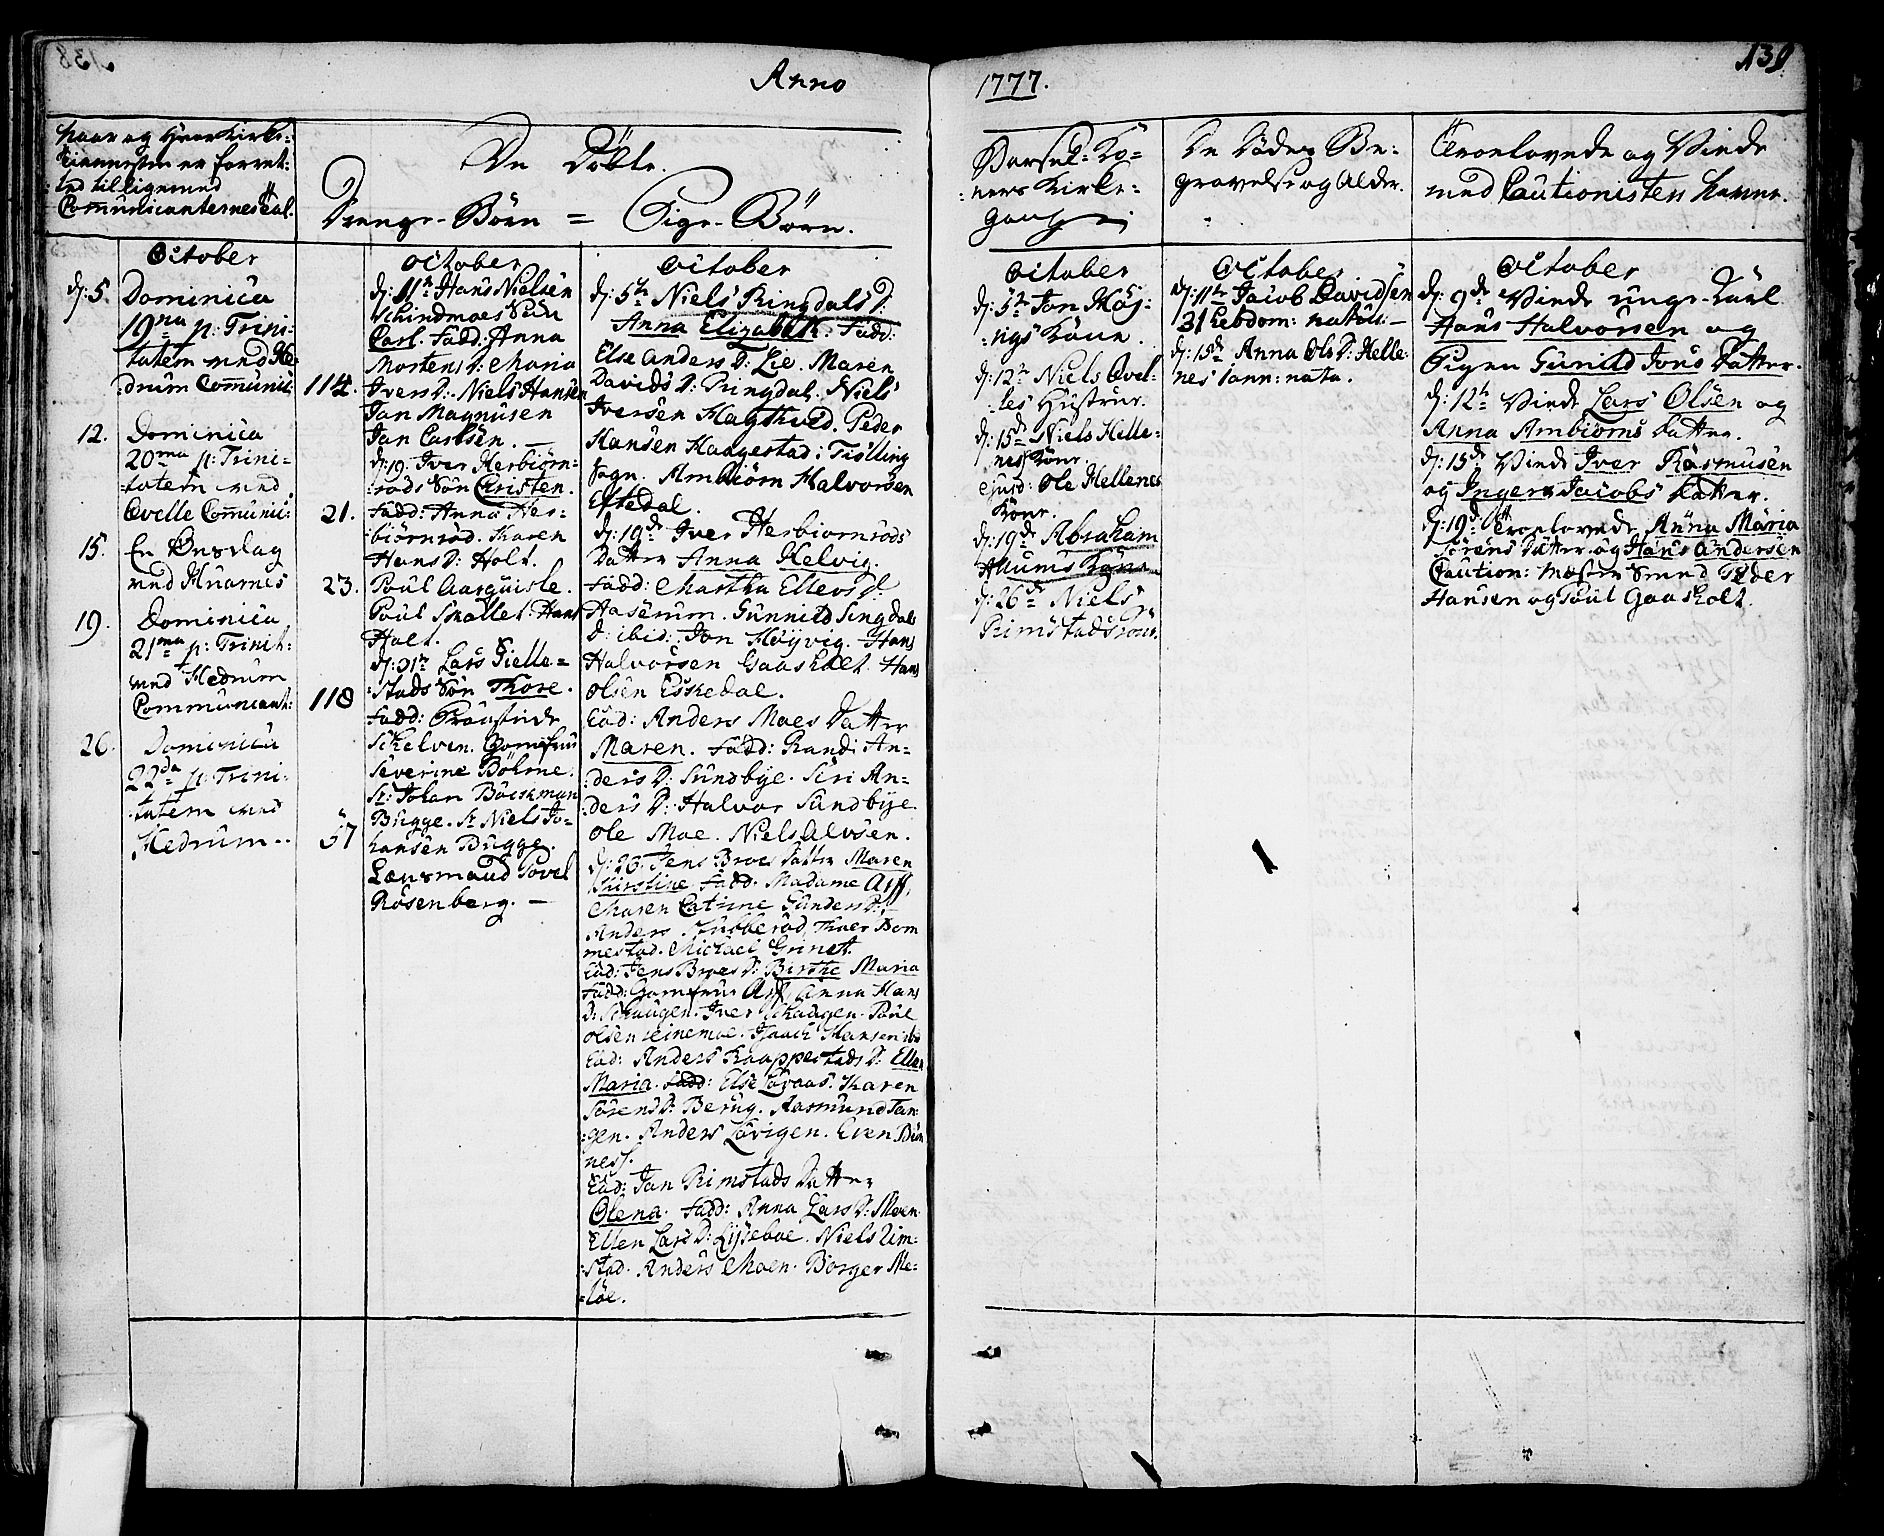 Anno
1777.
139
Naar og Hvor Kirke=
Tienesten er forret=
ted tilligemed
Comunicanternes Tal.
De Döbte.
Drenge-Börn = Pige-Börn.
Barsel-Ko=
ners Kirke=
gang
De Dödes Be=
gravelse og Alder.
Troelovede og Viede
med Cautionisters Navne.
October
d: 5. Dominica
19na p: Trini=
tatem ved He=
drum Comunic:
114.
12. Dominica
20ma p: Trini=
tatem ved
Qvelle Comunic:
21.
15. En Onsdag
ved Huarnes
23.
19. Dominica
21ma p: Trinit:
ved Hedrum
Communicant:
118
26. Dominica
22da p: Trini=
tatem ved
Hedrum
57
October
d: 11te Hans Nielsen
Schindmoes Sön
Carl. Fadd: Anna
Mortens D: Maria
Ivers D: Niels Hansen
Jan Magnusen
Jan Carlsen.
d: 19. Iver Herbiörn=
röds Sön Cristen.
Fadd: Anna Her=
biörnröd. Karen
Hans D: Holt.
Poul Aasquisle.
Poul Skallet. Hans
Holt.
Lars Gielle=
stads Sön Thore.
Fadd:
Skelven. Jomfrue
Severine Böhme.
Sr: Johan Böckman
Bugge. Sr Niels Jo=
hansen Bugge.
Lensmand Povel
Rosenberg.
October
d: 5te Niels Ringdals D:
Anna Elizabeth. Fadd:
Else Anders D: Lie. Maren
Davids D: Ringdal. Niels
Iversen Hagthved. Peder
Hansen Haagestad i Tiölling
Sogn. Ambiörn Halvorsen
Eftedal.
d: 19de Iver Herbiornröds
Datter Anna Helvig.
Fadd: Martha Ellevs D:
Haserum. Gunnild Lingdals
D: ibid: Jon Höyvig. Hans
Halvorsen Gaasholt. Hans
Olsen Eskedal.
Eod: Anders Moes Datter
Maren. Fadd: Randi An=
ders D: Sundbye. Siri An=
ders D: Halvor Sundbye.
Ole Moe. Niels Alvsen.
d: 26. Jens Broes Datter Maren
Kirstine Fadd: Madame Arff,
Maren Catrine Gunders D:
Anders Stubberöd. Thoer Bom
mestad. Michael Grinet.
Eod: Jens Broes D: Birthe Maria
Fadd: Jomfrue Arff Anna Hans
D: Schaugen. Iver Schaugen. Poul
Olsen Leinemoe. Isaach Hansen ibd
Eod: Anders Kaappestads D: Ellen
Maria. Fadd: Else Lovaas. Karen
Sörens D: Berug. Rasmund Tan=
gen. Anders Lövigen. Even Biön
ness.
Eod: Jan Rimstads Datter
Olena. Fadd: Anna Lars D: Moen
Ellen Lars D: Lyseboe. Niels Rim=
stad. Anders Moen. Borger Me=
löe.
October
d: 5te Jan Höy=
vigs Kone.
d: 12te Niels Qvel=
les Hustrue.
d: 15de Niels Helle=
nes Kone.
Ejusd: Ole Hellenes
Kone.
d: 19de Abraham
Aurums Kone
d: 26de Niels
Rimstads Kone.
October
d: 11te Jacob Davidsen
31 hebdom: natus:
d: 15de Anna Ols D: Helle=
nes 1 ann: nata.
October
d: 9de Viede unge Karl
Hans Halvorsen og
Pigen Gunild Jons Datter.
d: 12te Viede Lars Olsen og
Anna Ambiörns Datter.
d: 15de Viede Iver Rasmusen
og Inger Jacobs Datter.
d: 19de Troelovede Anna Maria
Sörens Datter og Hans Andersen
Caution: Mester Smed Peder
Hansen og Poul Gaasholt.